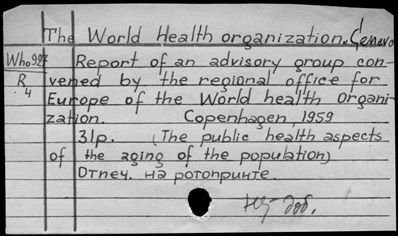 The World Health organization. Geneva
Who927 Report of an advisory group con-
R vened by the regional office for
4 Europe of the World health Organi-
zation. Copenhagen, 1959
31p. (The public health aspects
of the aging of the population)
Отпеч. на ротопринте.